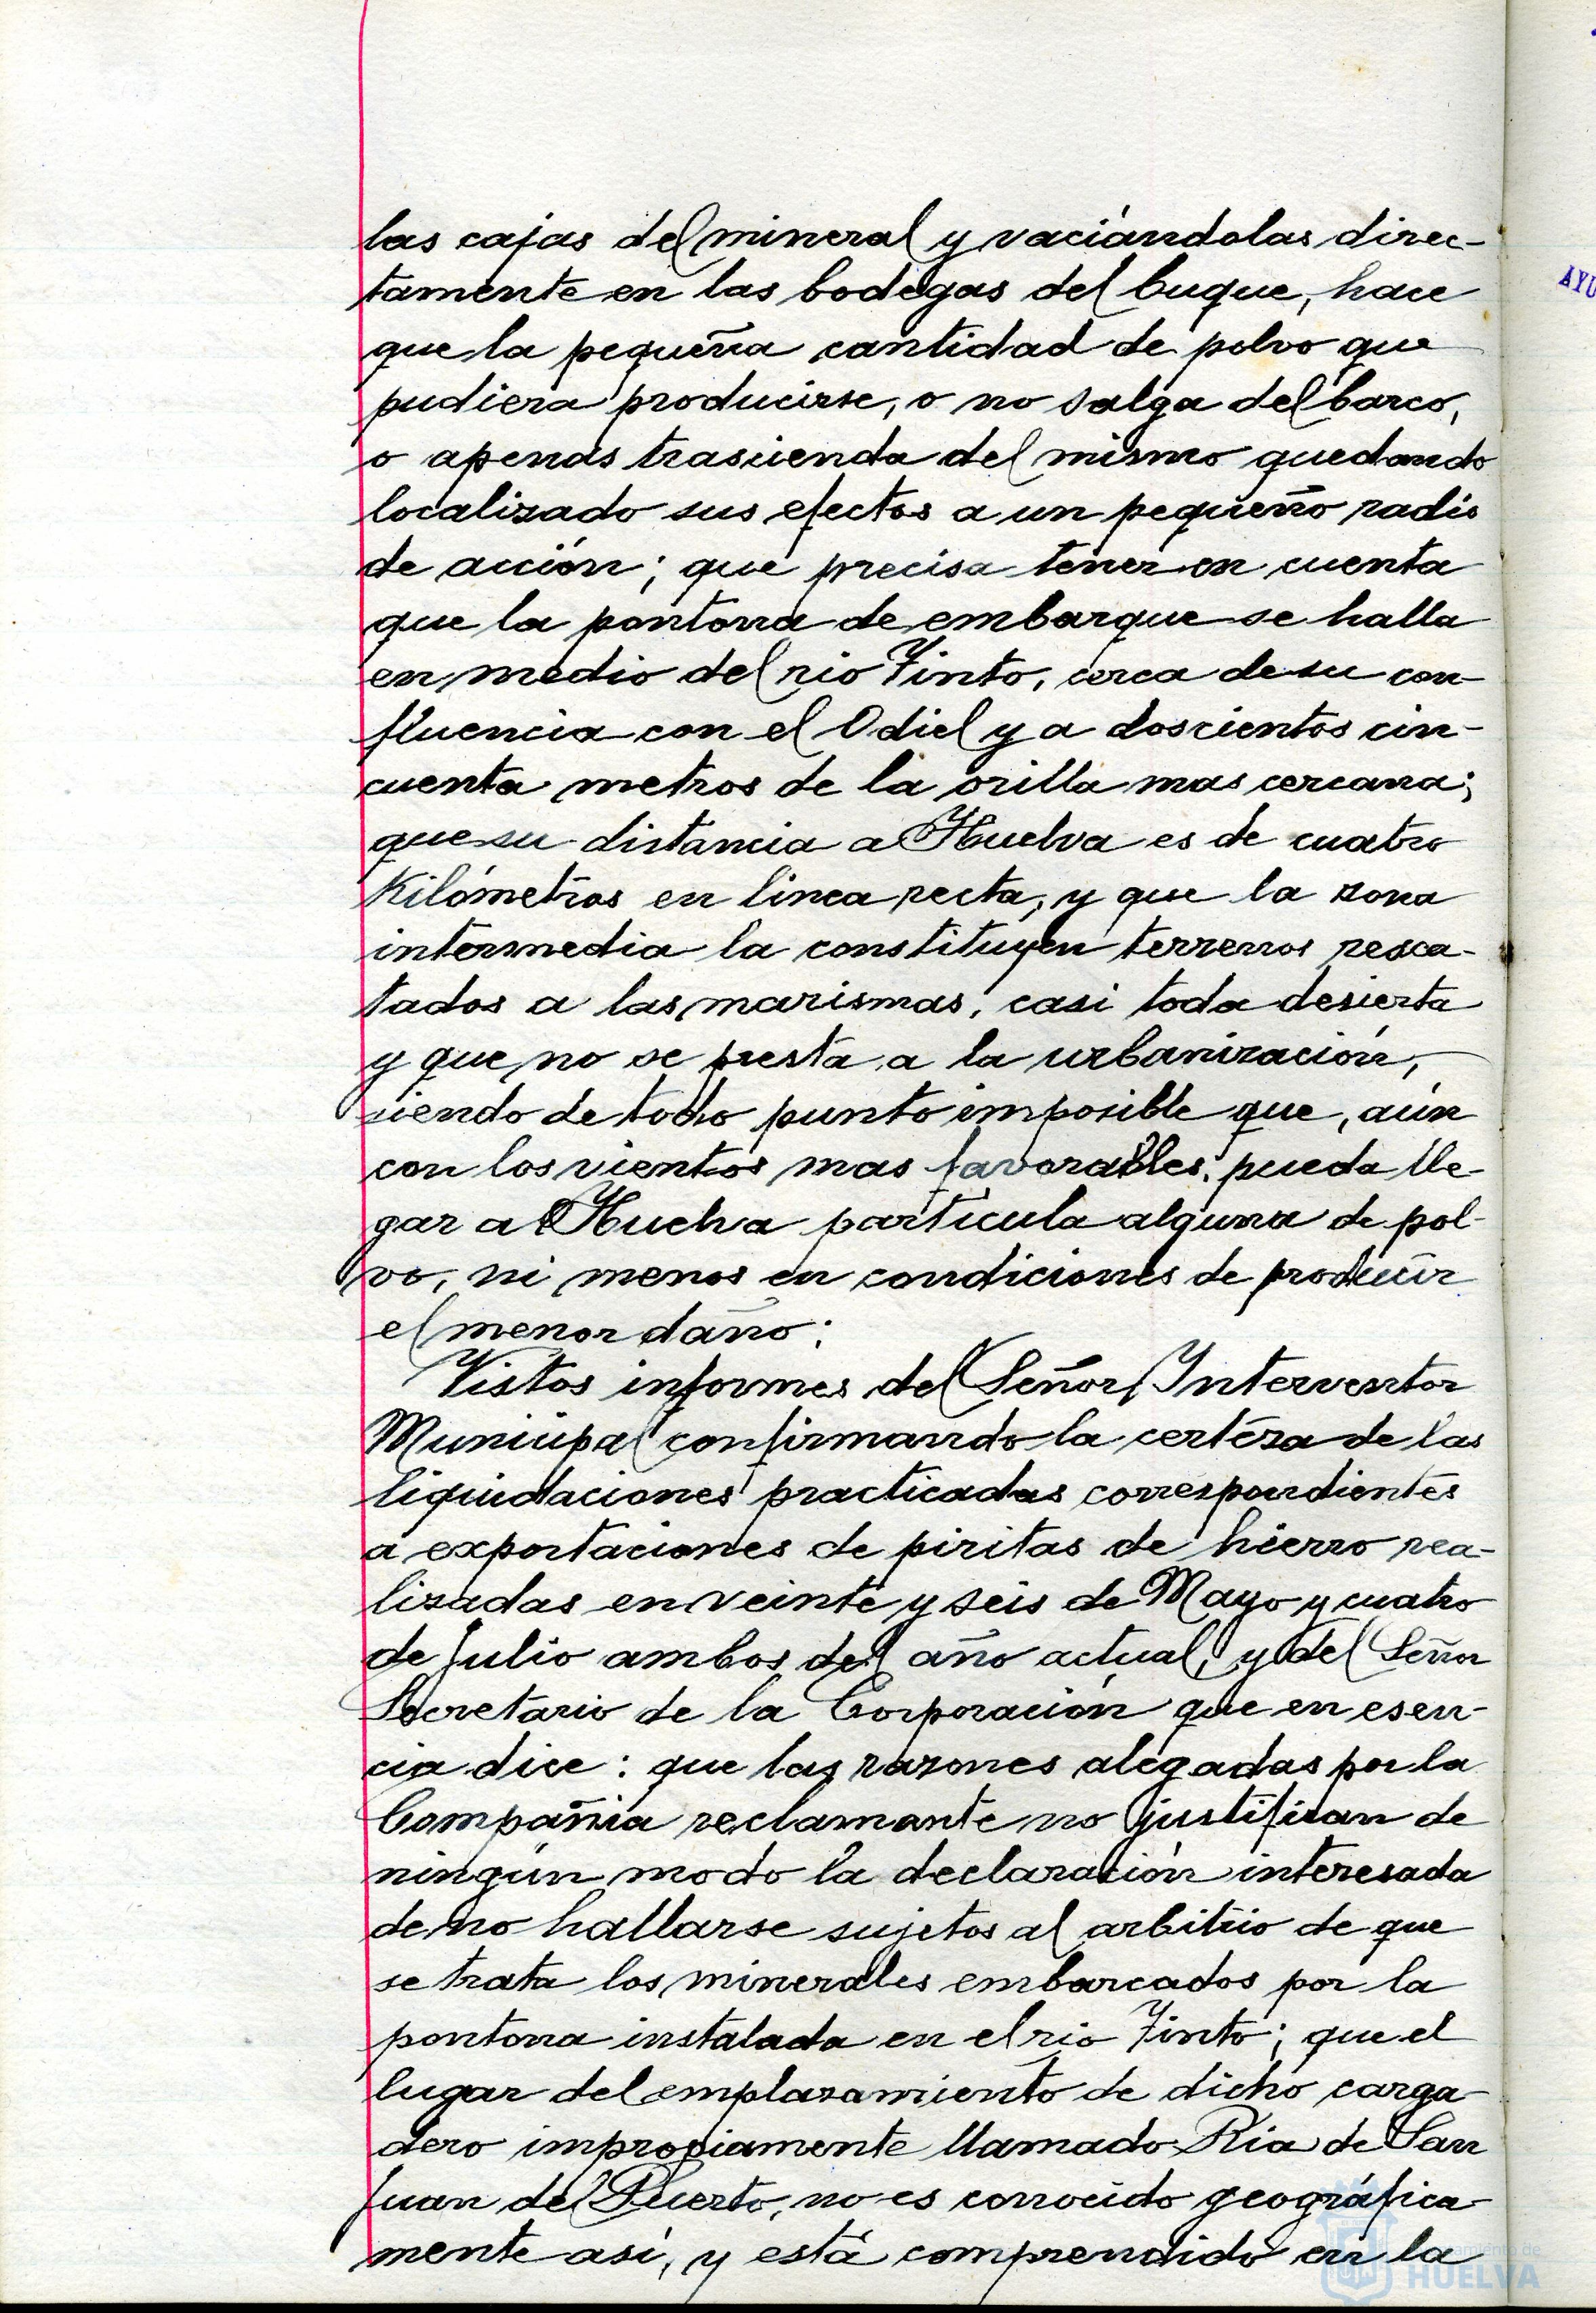 las cajas del mineral y vaciándolas direc-
tamente en las bodegas del buque, hace
que la pequeña cantidad de polvo que
pudiera producirse, o no salga del barco,
o apenas trascienda del mismo quedando
localizado sus efectos a un pequeño radio
de acción; que precisa tener en cuenta
que la pontona de embarque se halla
en medio del rio Tinto, cerca de su con-
fluencia con el Odiel y a doscientos cin-
cuenta metros de la orilla mas cercana;
que su distancia a Huelva es de cuatro
Kilómetros en linea recta, y que la zona
intermedia la constituyen terrenos resca-
tados a las marismas, casi toda desierta
y que no se presta a la urbanización,
siendo de todo punto imposible que, aún
con los vientos mas favorables, pueda lle-
gar a Huelva partícula alguna de pol-
vo, ni menos en condiciones de producir
el menor daño;
Vistos informes del Señor Interventor
Municipal confirmando la certeza de las
liquidaciones practicadas correspondientes
a exportaciones de piritas de hierro rea-
lizadas en veinte y seis de Mayo y cuatro
de Julio ambos del año actual, y del Señor
Secretario de la Corporación que en esen-
cia dice: que las razones alegadas por la
Compañia reclamante no justifican de
ningún modo la declaración interesada
de no hallarse sujetos al arbitrio de que
se trata los minerales embarcados por la
pontona instalada en el rio Tinto; que el
lugar del emplazamiento de dicho carga-
dero impropiamente llamado Ria de San
Juan del Puerto, no es conocido geográfica-
mente así, y está comprendido en la
AYU
Ayuntamiento de
HUELVA